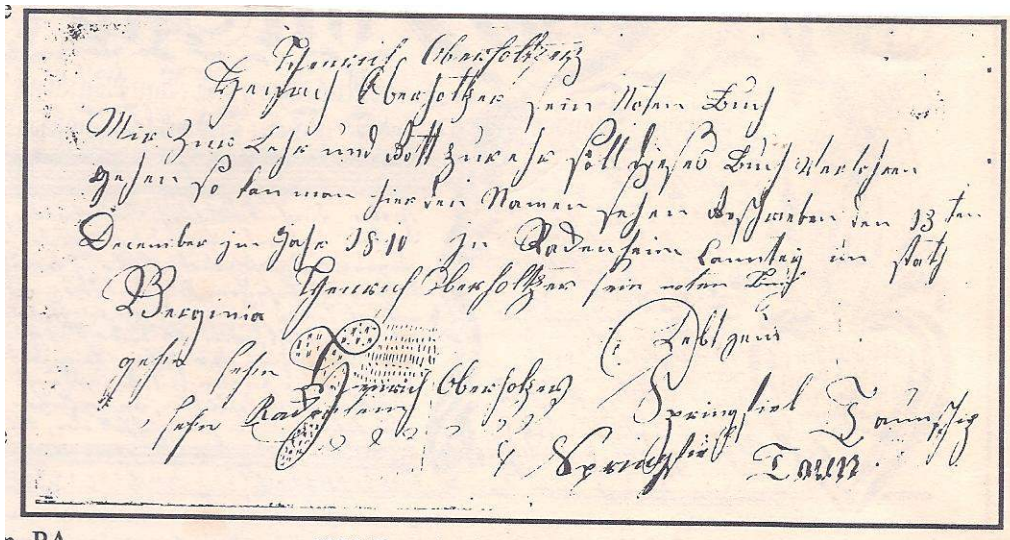 Henrich Oberholtzers
Henrich Oberholtzer sein Noten Buch
Mir Zur Lehr und Gott zur ehr soll dieses Buch Verlohren
gehen so kan man hier den Namen sehen Geschrieben den 13ten
December im Jahr 1810 in Radenheim Caunty im stath
Verginia Henrich Oberholtzer sein noten Buch
Lebt
gehn sehn Heinrich Oberholtzers Springfiel Taunschip
sehn Springfiel Taun
PA